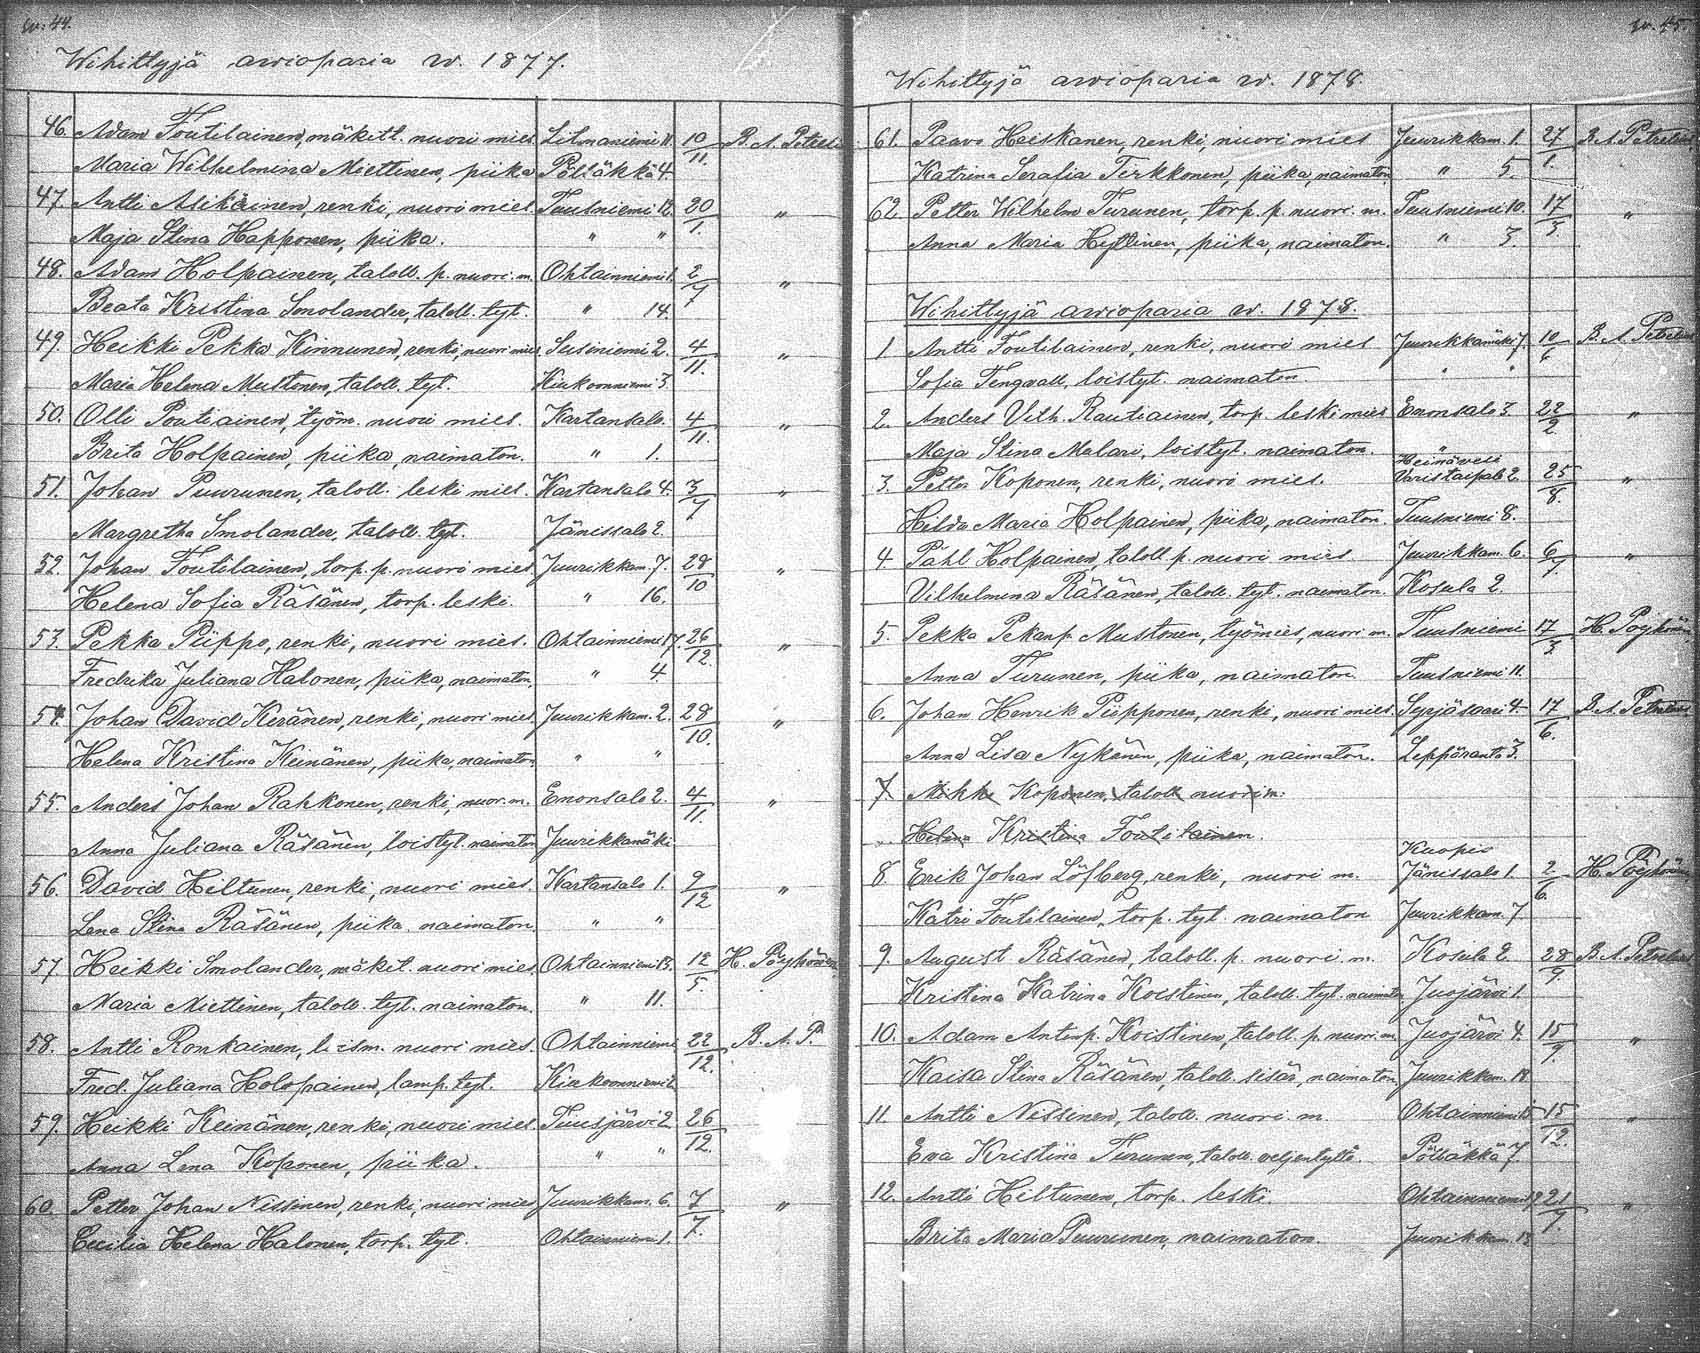 siv. 44.
Wihittyjä awioparia w. 1877.
46. Adam Toutilainen, mäkitl. nuori mies Litmaniemi 11. 10/11. B. A. Petreli
Maria Wilhelmina Miettinen, piika Pölläkkä 4
47. Antti Asikainen, renki, nuori mies. Tuusniemi 12. 20/1. "
Maja Stina Happonen, piika. " "
48. Adam Holpainen, taloll. p. nuori. m. Ohtainniemi 1. 2/7 "
Beata Kristina Smolander, taloll. tyt. " 14.
49. Heikki Pekka Kinnunen, renki, nuori mies Susiniemi 2. 4/11. "
Maria Helena Mustonen, taloll. tyt. Kiukoonniemi 3.
50. Olli Poutiainen, työm. nuori mies. Kartansalo. 4/11. "
Brita Holpainen, piika, naimaton. " 1.
51. Johan Puurunen, taloll. leski mies. Kartansalo 4. 3/7 "
Margretha Smolander, taloll. tyt. Jänissalo 2.
52. Johan Toutilainen, torp. p. nuori mies Juurikkam. 7. 28/10 "
Helena Sofia Räsänen, torp. leski. " 16.
53. Pekka Piippo, renki, nuori mies. Ohtainniemi 17. 26/12. "
Fredrika Juliana Halonen, piika, naimaton. " 4.
54. Johan David Keränen, renki, nuori mies Juurikkam. 2. 28/10. "
Helena Kristina Keinänen, piika, naimaton " "
55. Anders Johan Rahkonen, renki, nuor. m. Enonsalo 2. 4/11. "
Anna Juliana Räsänen, loistyt. naimaton Juurikkamäki
56. David Hiltunen, renki, nuori mies. Kartansalo 1. 9/12 "
Lena Stina Räsänen, piika naimaton. " "
57. Heikki Smolander, mäkit. nuori mies Ohtainniemi 13. 12/5. H. Pöyhönen
Maria Miettinen, taloll. tyt. naimaton. " 11.
58. Antti Ronkainen, loism. nuori mies. Ohtainniemi 22/12. B. A. P.
Fred. Juliana Holopainen, lamp. tyt. Kiukoonniemi 2
59. Heikki Keinänen, renki, nuori mies. Tuusjärvi 2 26/12. "
Anna Lena Koponen, piika. " "
60. Petter Johan Nissinen, renki, nuori mies Juurikkam. 6. 7/7. "
Cecilia Helena Halonen, torp. tyt. Ohtainniemi 1.
siv. 45.
Wihittyjä awioparia w. 1878.
61. Paavo Heiskanen, renki, nuori mies Juurikkam. 1. 27/1. B. A. Petrelius
Katrina Serafia Terkkonen, piika, naimaton " 5.
62. Petter Wilhelm Turunen, torp. p. nuori. m. Tuusniemi 10. 17/3 "
Anna Maria Hyttinen, piika, naimaton. " 3.
Wihittyjä awioparia w. 1878.
1 Antti Toutilainen, renki, nuori mies Juurikkamäki 7. 10/6 B. A. Petrelius
Sofia Tengvall, loistyt. naimaton. " "
2. Anders Vilh. Rautiainen, torp. leski mies Enonsalo 3. 22/2. "
Maja Stina Malari, loistyt. naimaton. "
3. Petter Koponen, renki, nuori mies. Heinävesi Varistaipale 2. 25/8. "
Hilda Maria Holpainen, piika, naimaton. Tuusniemi 8.
4 Påhl Holpainen, taloll. p. nuori mies. Juurikkam. 6. 6/7. "
Vilhelmina Räsänen, taloll. tyt. naimaton. Kosula 2.
5. Pekka Pekanp. Mustonen, työmies, nuori m. Tuusniemi 17/3 H. Pöyhönen
Anna Turunen, piika, naimaton. Tuusniemi 11.
6. Johan Henrik Piipponen, renki, nuori mies. Syrjäsaari 4. 17/6. B. A. Petrelius
Anna Lisa Nykänen, piika, naimaton. Leppäranta 3.
7. Mikko Koponen, taloll nuori m.
" Helena Kristina Toutilainen.
8. Erik Johan Löfberg, renki, nuori m. Kuopio Jänissalo 1. 2/6. H. Pöyhönen
Katri Toutilainen, torp. tyt. naimaton Juurikkam. 7
9. August Räsänen, taloll. p. nuori. m. Kosula 2 28/9. B. A. Petrelius
Kristina Katrina Koistinen, taloll. tyt. naimaton Juojärvi 1.
10. Adam Antinp. Koistinen, taloll. p. nuori m. Juojärvi 4. 15/9. "
Kaisa Stina Räsänen, taloll. sisar, naimaton Juurikkam. 18
11. Antti Nissinen, taloll. nuori. m. Ohtainniemi 15 15/12. "
Eva Kristiina Turunen, taloll. veljentyttö. Pölläkkä 7.
12. Antti Hiltunen, torp. leski. Ohtainniemi 19 21/9. "
Brita Maria Puurunen, naimaton. Juurikkam. 13